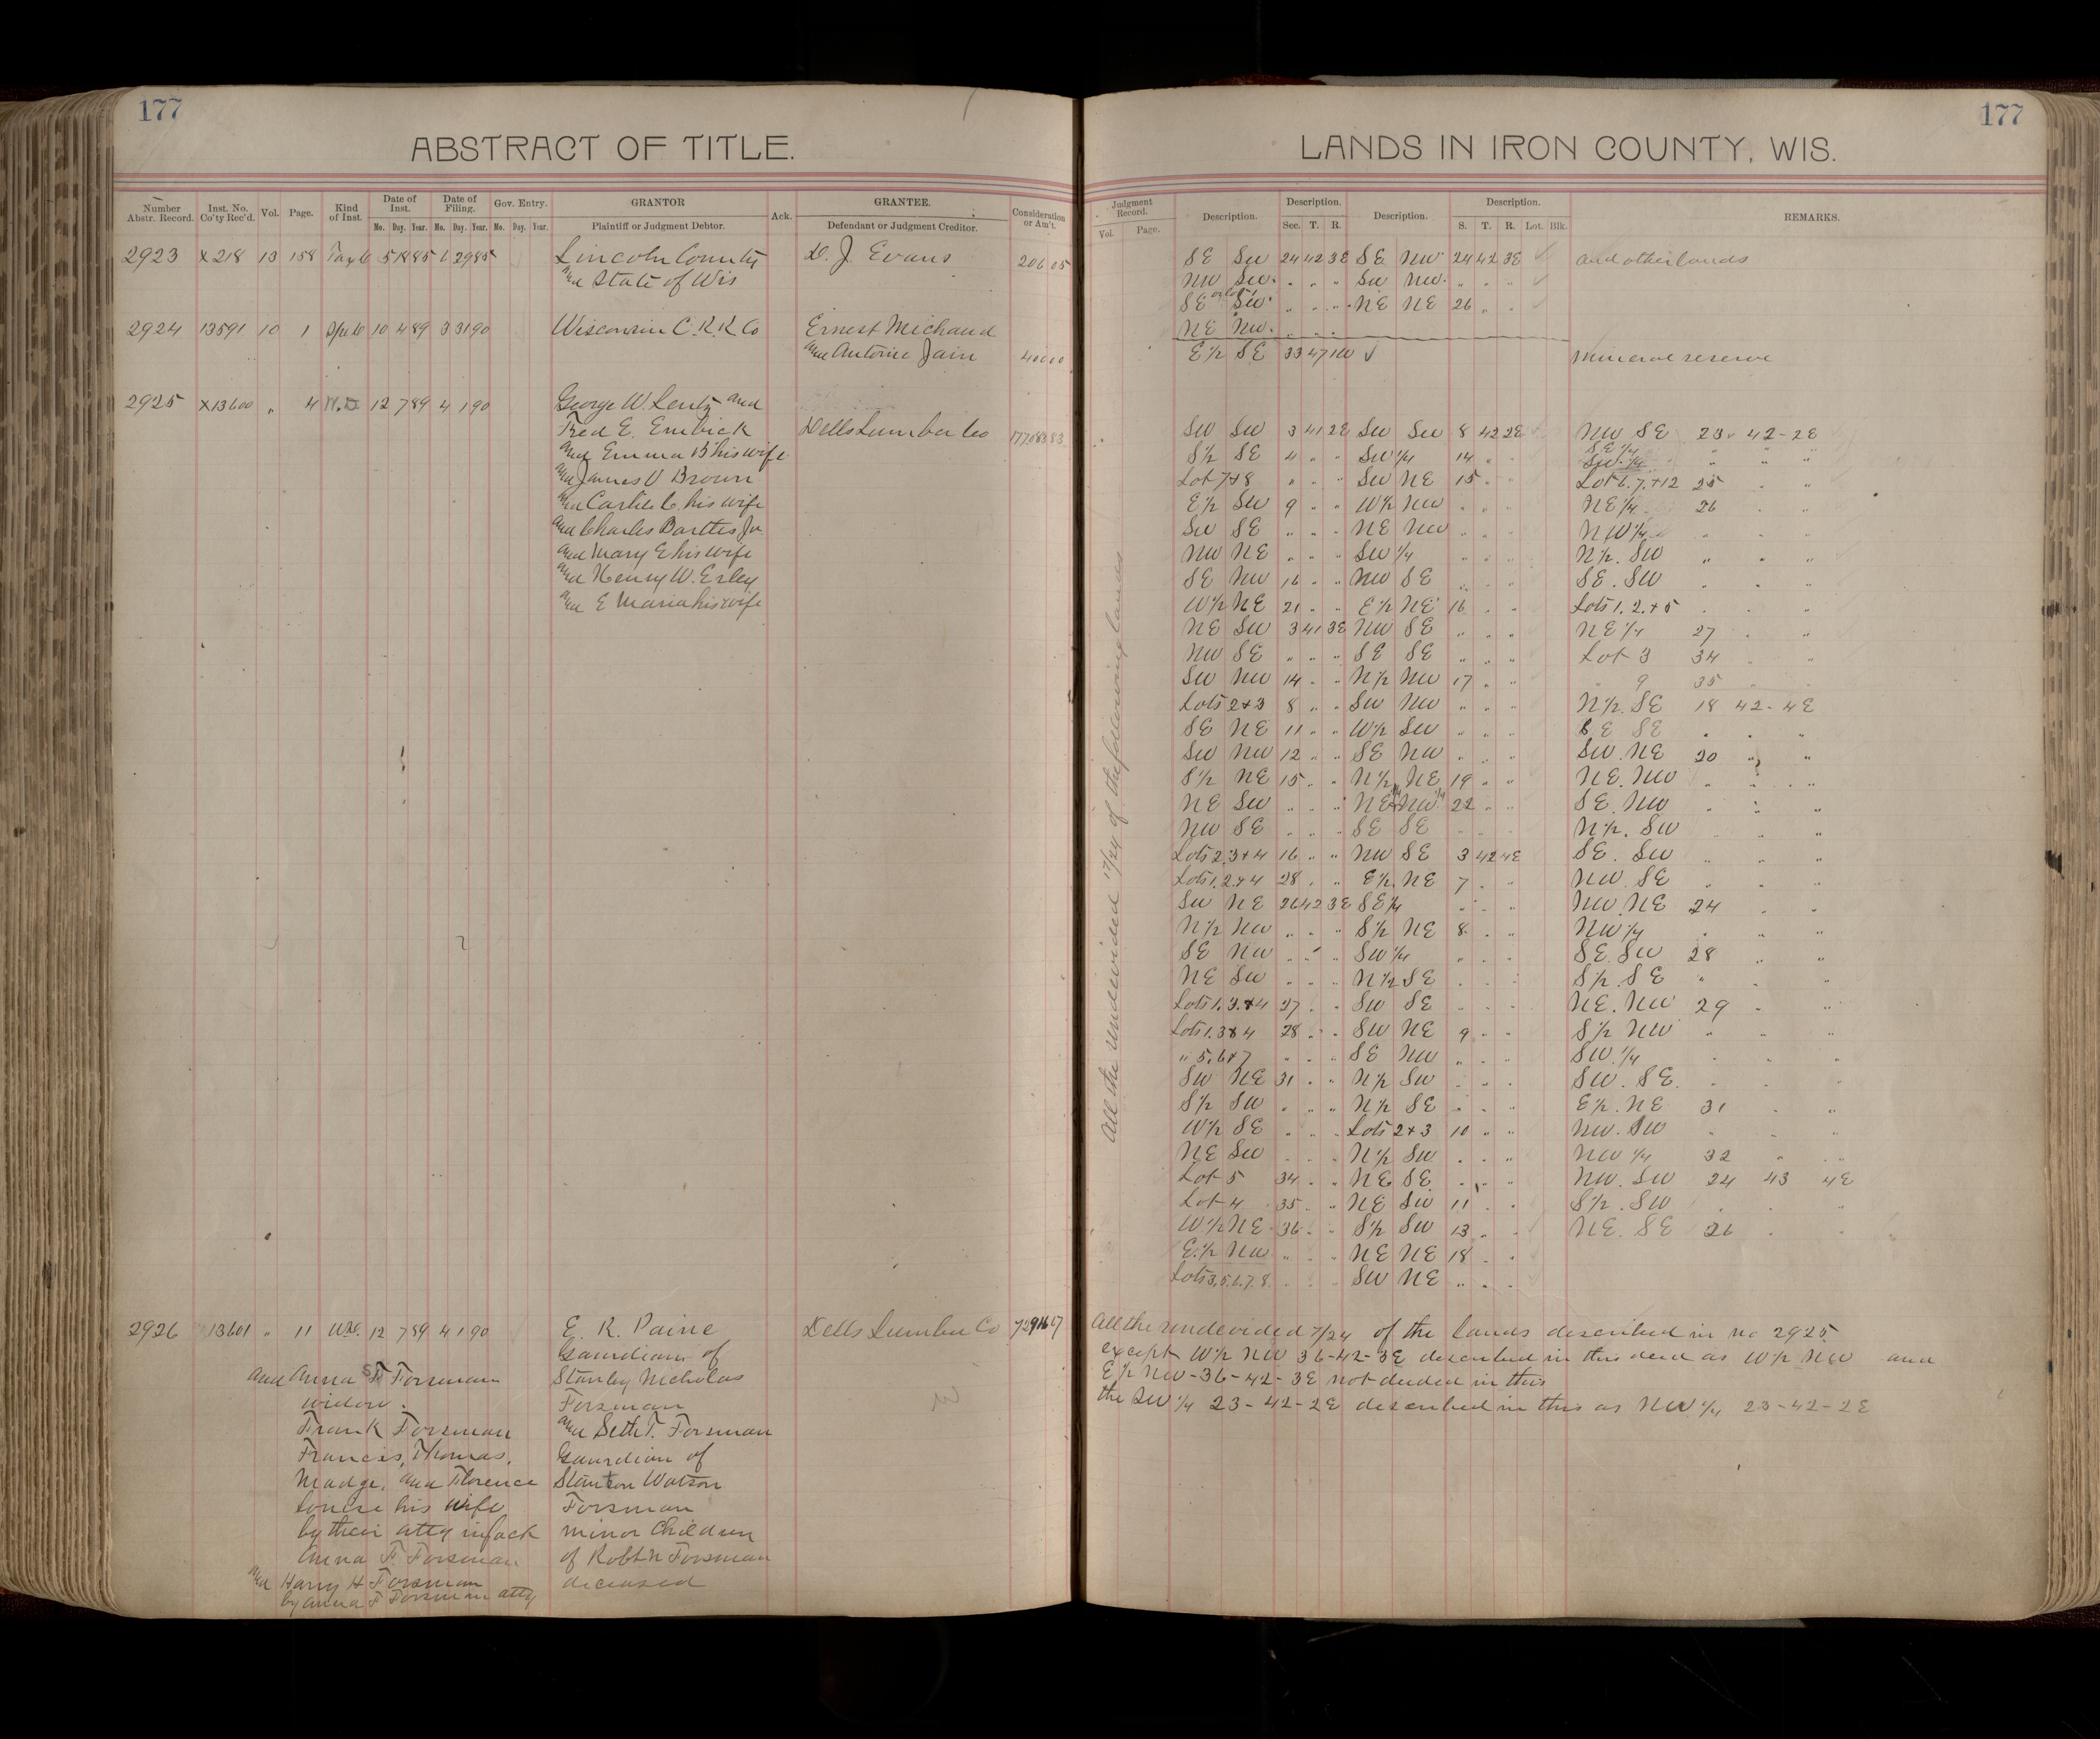 177
ABSTRACT OF TITLE.
Number Abstr. Record. Inst. No. Co'ty Rec'd. Vol. Page. Kind of Inst. Date of Inst. Date of Filing. Gov. Entry. GRANTOR Ack. GRANTEE. Consideration or Am't.
Mo. Day. Year. Mo. Day. Year. Mo. Day. Year. Plaintiff or Judgment Debtor. Defendant or Judgment Creditor.
2923 X218 13 158 Tax D 5 1885 6 29 85 Lincoln County D. J. Evans 206 05
and State of Wis
2924 13591 10 1 10 4 89 3 31 90 Wisconsin C. R. R. Co Ernest Michaud
and Antoine Jain 400 00
2925 X13600 " 4 W.D 12 7 89 4 1 90 George W. Lentz and
Fred E. Embick Dells Lumber Co 177083 83
and Emma B his wife
and James V Brown
and Carlile C. his wife
and Charles Bartles Jr.
and Mary E his wife
and Henry W. Erley
and E Maria his wife
2926 13601 " 11 W.D. 12 7 89 4 1 90 E. R. Paine Dells Lumber Co 72916 17
Gaurdians of
and Anna F Forsman Stanley Nicholas
widow. Forsman
Frank Forsman and Seth T. Forsman
Francis, Thomas, Gaurdian of
Madge, and Florence Stanton Watson
Louise his wife Forsman
by their atty in fack minor Children
Anna F. Forsman of Robt N Forsman
and Harry H Forsman deceased
by Anna F Forsman atty
177
LANDS IN IRON COUNTY, WIS.
Judgment Record. Description. Description. Description. Description. REMARKS.
Vol. Page. Sec. T. R. S. T. R. Lot. Blk.
SE SW 24 42 3E SE NW 24 42 3E and other lands
NW SW " " " SW NW " " "
SE SW " " " NE NE 26 " "
NE NW " " "
E½ SE 33 47 1W mineral reserve
All the undevided 17/24 of the following lands
SW SW 3 41 2E SW SW 8 42 2E NW SE 23 - 42 - 2E
S½ SE 4 " " SW¼ 14 " " SE¼ " " "
SW ¼
Lot 7+8 " " " SW NE 15 " " Lot 6. 7. +12 25 " "
E½ SW 9 " " W½ NW " " " NE¼ 26 " "
SW SE " " " NE NW " " " NW¼ " " "
NW NE " " " SW ¼ " " " N½. SW " " "
SE NW 16 " " NW SE " " " SE. SW " " "
W½ NE 21 " " E½ NE 16 " " Lots 1. 2. +5 " " "
NE SW 3 41 3E NW SE " " " NE¼ 27 " "
NW SE " " " SE SE " " " Lot 3 34 " "
SW NW 14 " " N½ NW 17 " " " 9 35 " "
Lots 2+3 8 " " SW NW " " " N½. SE 18 42 - 4E
SE NE 11 " " W½ SW " " " SE SE " " "
SW NW 12 " " SE NW " " " SW. NE 20 " "
S½ NE 15 " " N½ NE 19 " " NE. NW " " "
NE SW " " " NE¼ NW¼ 22 " " SE. NW " " "
NW SE " " " SE SE " " " N½. SW " " "
Lots 2, 3+4 16 " " NW SE 3 42 4E SE. SW " " "
Lots 1. 2. + 4 28 " " E½. NE 7 " " NW. SE " " "
SW NE 26 42 3E SE¼ " " " NW. NE 24 " "
N½ NW " " " S½ NE 8 " " NW¼ " " "
SE NW " " " SW¼ " " " SE. SW 28 " "
NE SW " " " N½ SE " " " S½. SE " " "
Lots 1. 3. +4 27 " " SW SE " " " NE. NW 29 " "
Lots 1. 3 & 4 28 " " SW NE 9 " " S½ NW " " "
" 5. 6+7 " " " SE NW " " " SW. ¼ " " "
SW NE 31 " " N½ SW " " " SW. SE. " " "
S½ SW " " " N½ SE " " " E½. NE 31 " "
W½ SE " " " Lots 2+3 10 " " NW. SW " " "
NE SW " " " N½ SW " " " NW ¼ 32 " "
Lot 5 34 " " NE SE " " " NW. SW 24 43 4E
Lot 4 35 " " NE SW 11 " " S½. SW " " "
W½ NE 36 " " S½ SW 13 " " NE. SE 26 " "
E½ NW " " " NE NE 18 " "
Lots 3. 5. 6. 7. 8 " " " SW NE " " "
All the undevided 7/24 of the lands described in no 2925
except W½ NW 36-42-3E described in this deed as W½ NW and
E½ NW - 36 - 42 - 3E not deeded in this
the SW ¼ 23 - 42 - 2E described in this as NW ¼ 23 - 42 - 2E